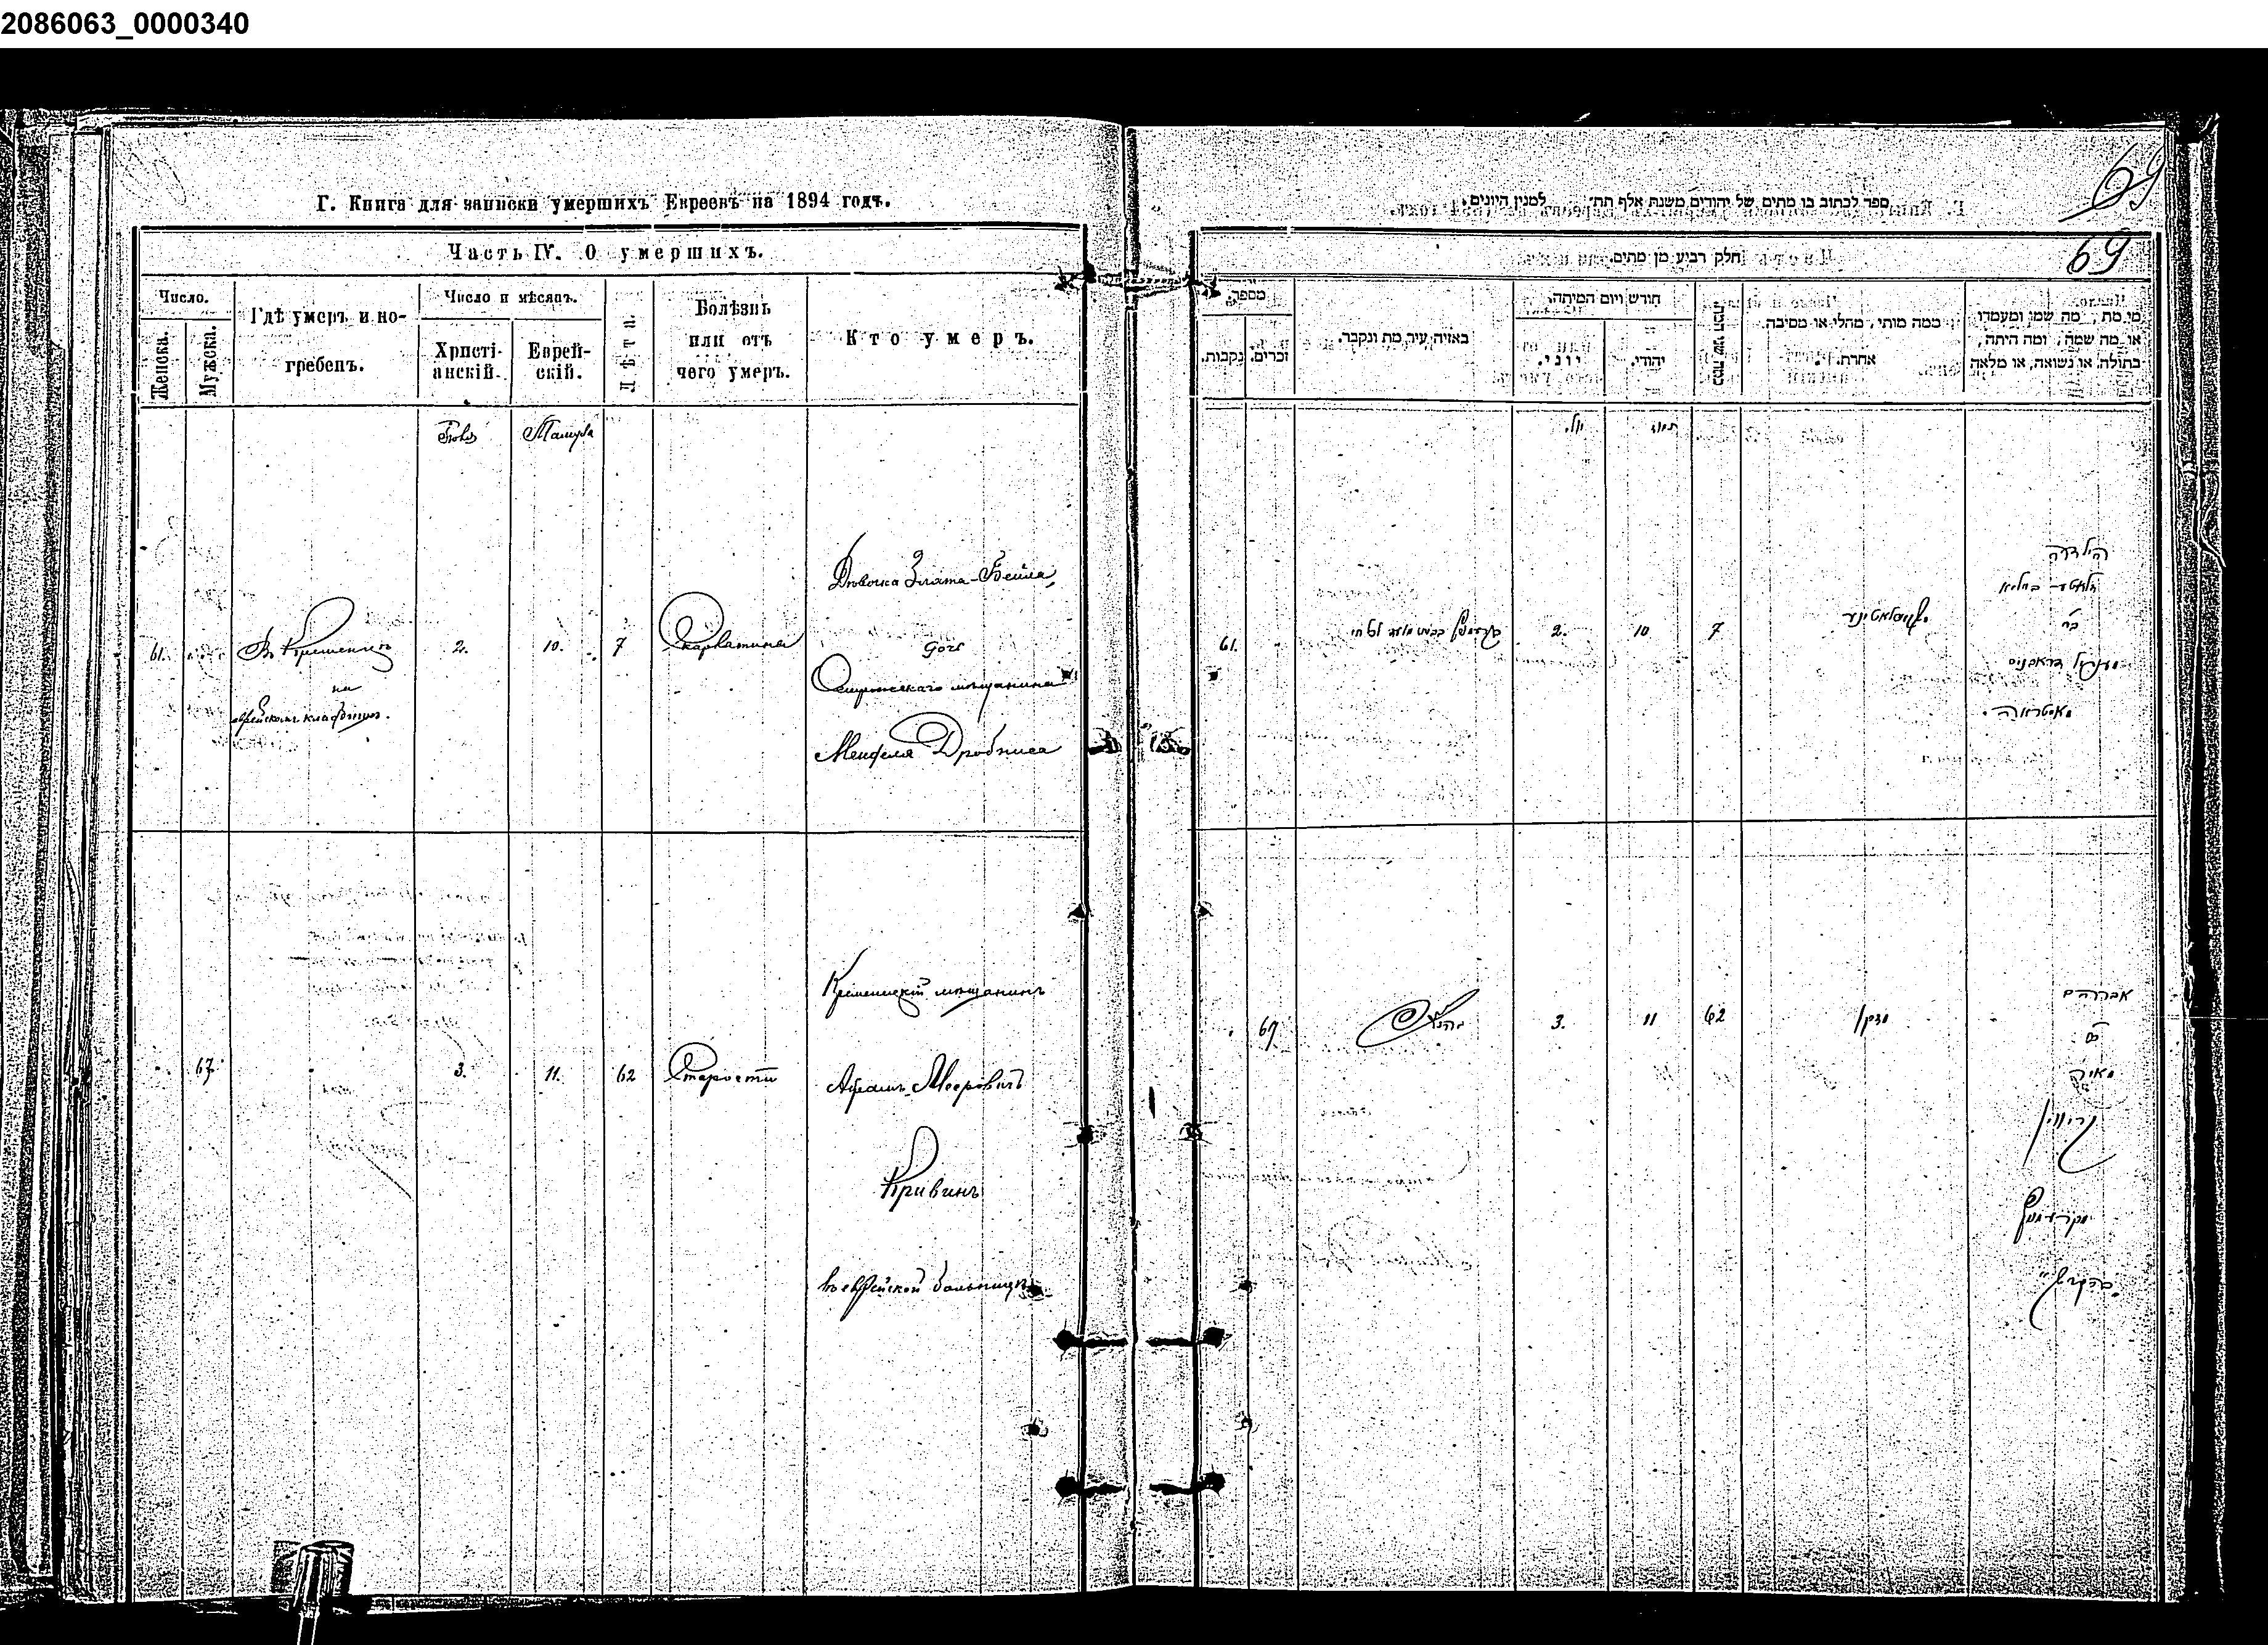 2086063_0000340
Г. Книга для записки умершихъ Евреевъ на 1894 годъ.
Часть IV. О умершихъ.
Число.
Женска.
Мужеска.
Гдѣ умеръ и по-
гребенъ.
Число и мѣсяцъ.
Христі-
анскій.
Еврей-
скій.
Лѣта.
Болѣзнь
или отъ
чего умеръ.
Кто умеръ.
61.
Въ Кременцѣ
на
еврейскомъ кладбищѣ.
2.
10.
7
Скарлатина
Дѣвочка Злата-Бейла,
дочь
Острожскаго мѣщанина
Менделя Дробниса
67
3.
11.
62
Старости
Кременецкій мѣщанинъ
Абрамъ Мееровичъ
Кривинъ
въ еврейской больницѣ
69
69
ספר לכתוב בו מתים של יהודים משנת אלף תת״ למנין היונים.
חלק רביע מן מתים.
מספר.
נקבות.
זכרים.
באיזה עיר מת ונקבר.
חודש ויום המיתה.
יוני.
יהודי.
כמה שני חייו
ממה מותו, מחלי או מסיבה
אחרת.
מי מת, מה שמו ומעמדו
או מה שמה, ומה היתה,
בתולה, או נשואה, או מלאה
יולי
תמוז
61.
2.
10
7
סקארלאטינע
הילדה
זלאטע ביילא
בת
מענדיל דראבניס
מאסטראה.
67
3.
11
62
מזקן
אברהם
בן
מאיר
קריווין
מקרעמניץ